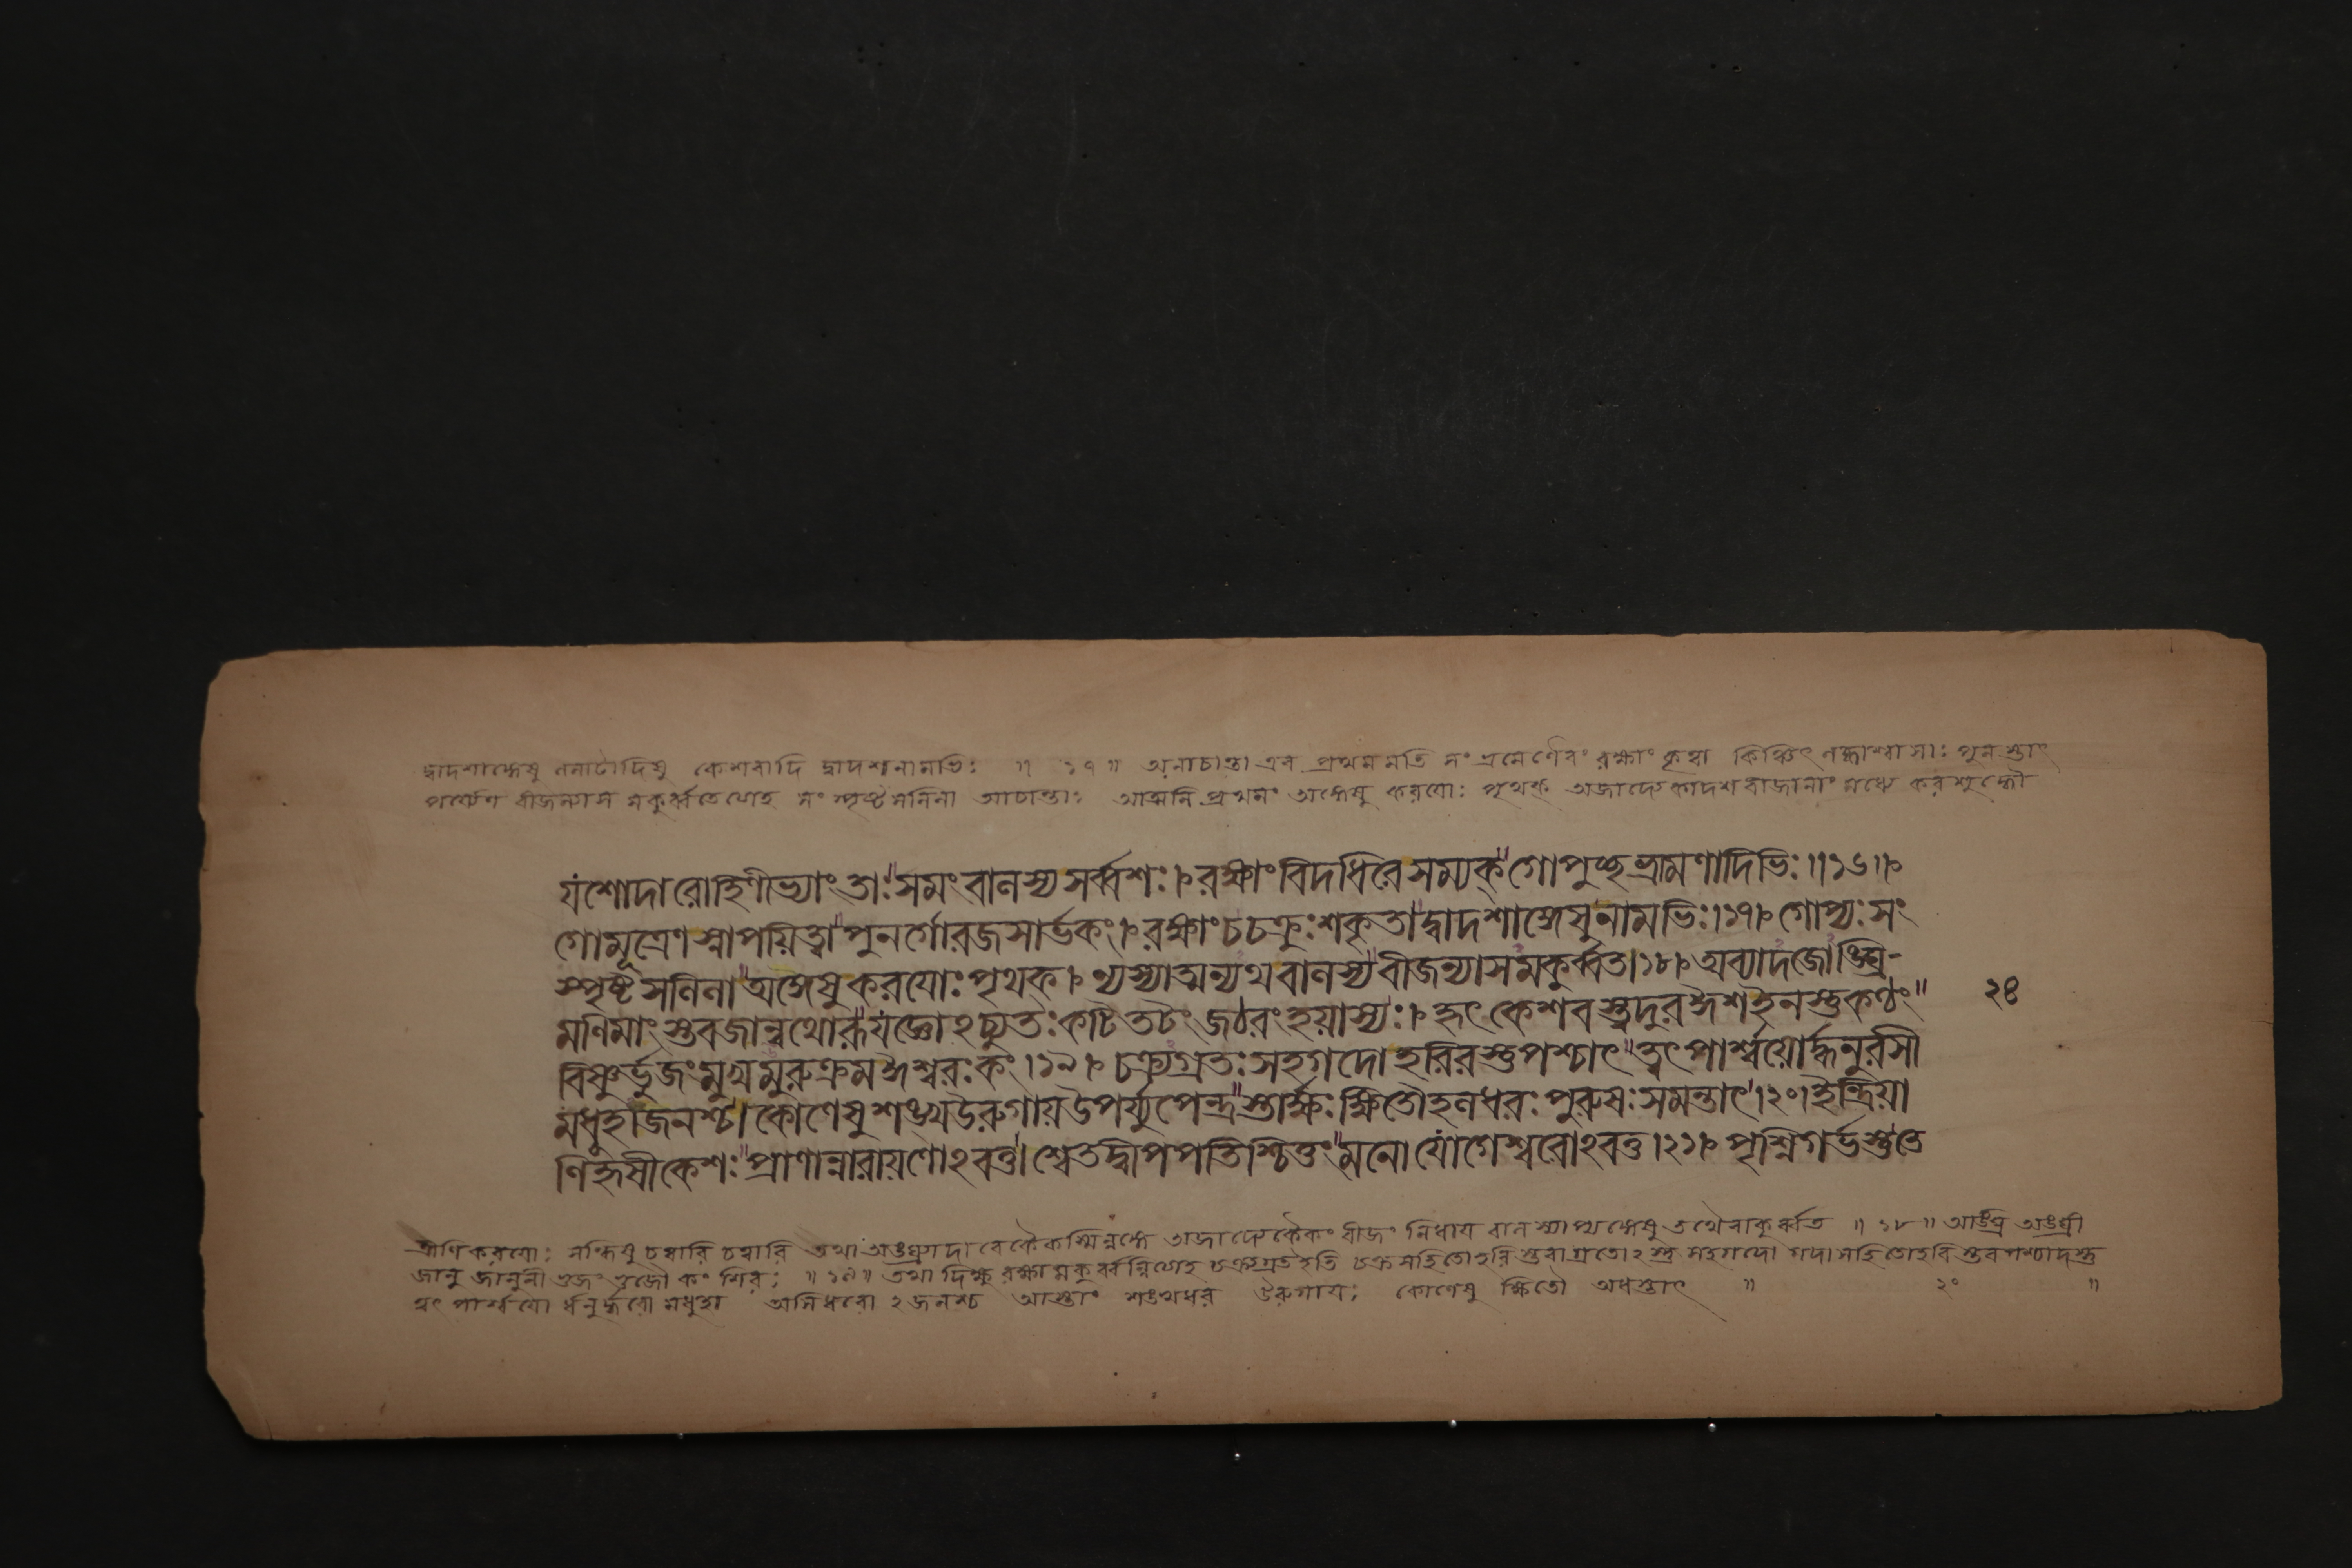 দ্বাদশাঙ্গেষু ললাটাদিষু কেশবাদি দ্বাদশনামভিঃ ॥ ১৭ ॥ অনাচান্তা এব প্রথমমতি সংভ্রমেণৈবং রক্ষাং কৃত্বা কিঞ্চিৎ লব্ধাশ্বাসাঃ পুনস্তাৎ
বীজন্যাস মকুর্ব্বতেত্যাহ সংস্পৃষ্টসলিলা আচান্তাঃ আত্মনি প্রথমং অঙ্গেষু করয়োঃ পৃথক্ অজাদ্যেকাদশবীজানাং মধ্যে করশুদ্ধৌ
যশোদারোহিণীভ্যাং তাঃ সমং বালস্য সর্ব্বশঃ। রক্ষাং বিদধিরে সম্যক্ গোপুচ্ছভ্রামণাদিভিঃ॥১৬॥
গোমূত্রেণ স্নাপয়িত্বা পুনর্গোরজসার্ভকং। রক্ষাং চ চক্রুঃ শকৃতা দ্বাদশাঙ্গেষু নামভিঃ।১৭। গোপ্যঃ সং
স্পৃষ্টসলিলা অঙ্গেষু করয়োঃ পৃথক্। ন্যস্যাত্মন্যথ বালস্য বীজন্যাসমকুর্ব্বত।১৮। অব্যাদজোঙ্ঘ্রি-
মণিমাংস্তবজান্বথোরূ যজ্ঞোঽচ্যুতঃ কটিতটং জঠরং হয়াস্যঃ। হৃৎ কেশবস্ত্বদুর ঈশ ইনস্তু কণ্ঠং ২৪
বিষ্ণুর্ভুজং মুখমুরুক্রম ঈশ্বরঃ কং।১৯। চক্র্যগ্রতঃ সহগদো হরিরস্তু পশ্চাৎ ত্বৎ পার্শ্বয়োর্দ্ধনুরসী
মধুহাজনশ্চ। কোণেষু শঙ্খ উরুগায় উপর্য্যুপেন্দ্রস্তার্ক্ষঃ ক্ষিতৌ হলধরঃ পুরুষঃ সমন্তাৎ।২০। ইন্দ্রিয়া
ণি হৃষীকেশঃ প্রাণান্নারায়ণোঽবতু। শ্বেতদ্বিপপতিশ্চিত্তং মনো যোগেশ্বরোঽবতু।২১। পৃশ্নিগর্ভস্তু তে
ত্রীণি করয়োঃ সন্ধিষু চত্বারি চত্বারি তথা অজাদ্যেকৈকং বীজং নিধায় বালস্যাপ্যঙ্গেষু তথৈবাকুর্ব্বত ॥ ১৮ ॥ অঙ্ঘ্রি অঙ্ঘ্রী
জানু জানুনী ভুজং ভুজৌ কং শিরঃ ॥ ১৯ ॥ তথা দিক্ষু রক্ষামকুর্ব্বন্নিত্যাহ চক্র্যগ্রত ইতি চক্রসহিতো হরিস্তবাগ্রতোঽস্তু সহগদো গদাসহিতো হরিস্তব পশ্চাদস্তু
ত্বৎ পার্শ্বয়ো র্ধনুর্দ্ধরো মধুহা অসিধরো ঽজনশ্চ আস্তাং শঙ্খধর উরুগায়ঃ কোণেষু ক্ষিতৌ অধস্তাৎ ॥ ২০ ॥